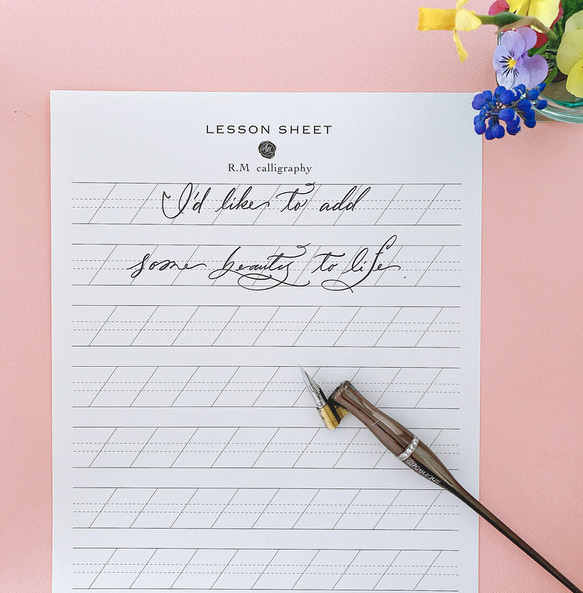 LESSON SHEET
R.M calligraphy
I'd like to add
some beauty to life.